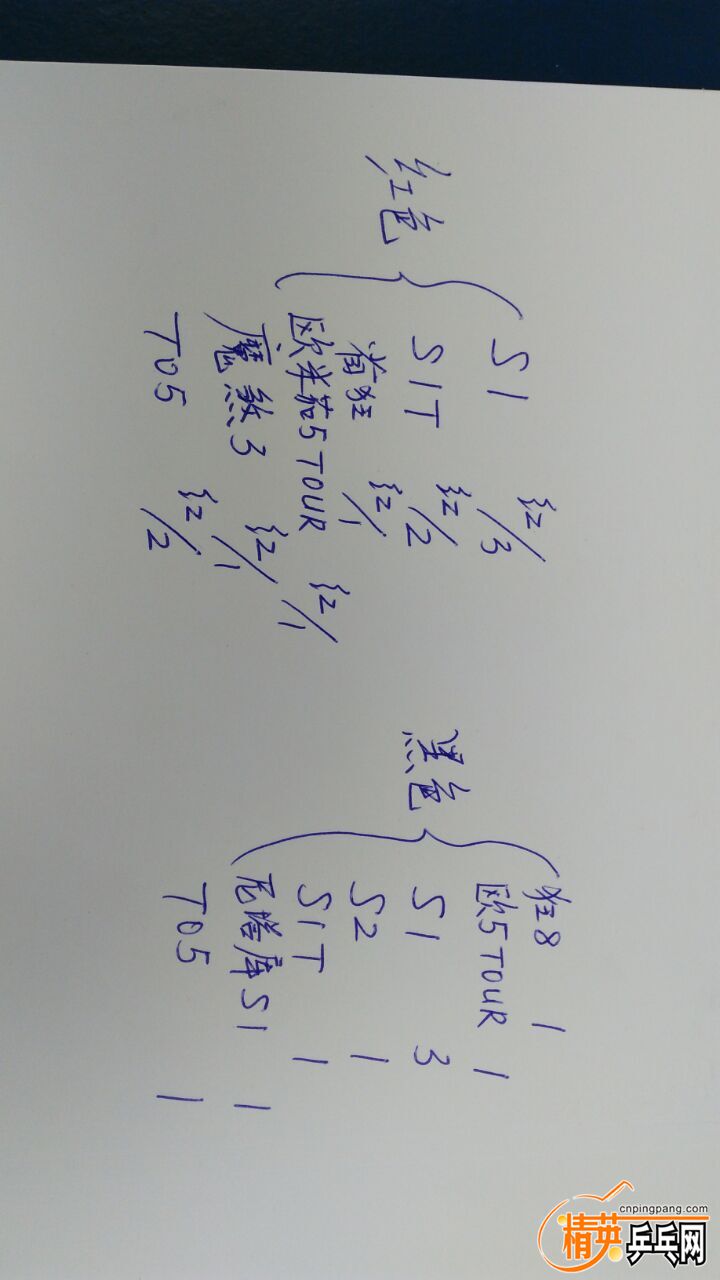 红色
S1 红/3
S1T 红/2
省狂 红/1
欧米茄5TOUR 红/1
魔煞3 红/1
T05 红/2
黑色
狂8 1
欧5TOUR 1
S1 3
S2 1
S1T 1
尼塔库S1 1
T05 1
cnpingpang.com
精英乒乓网